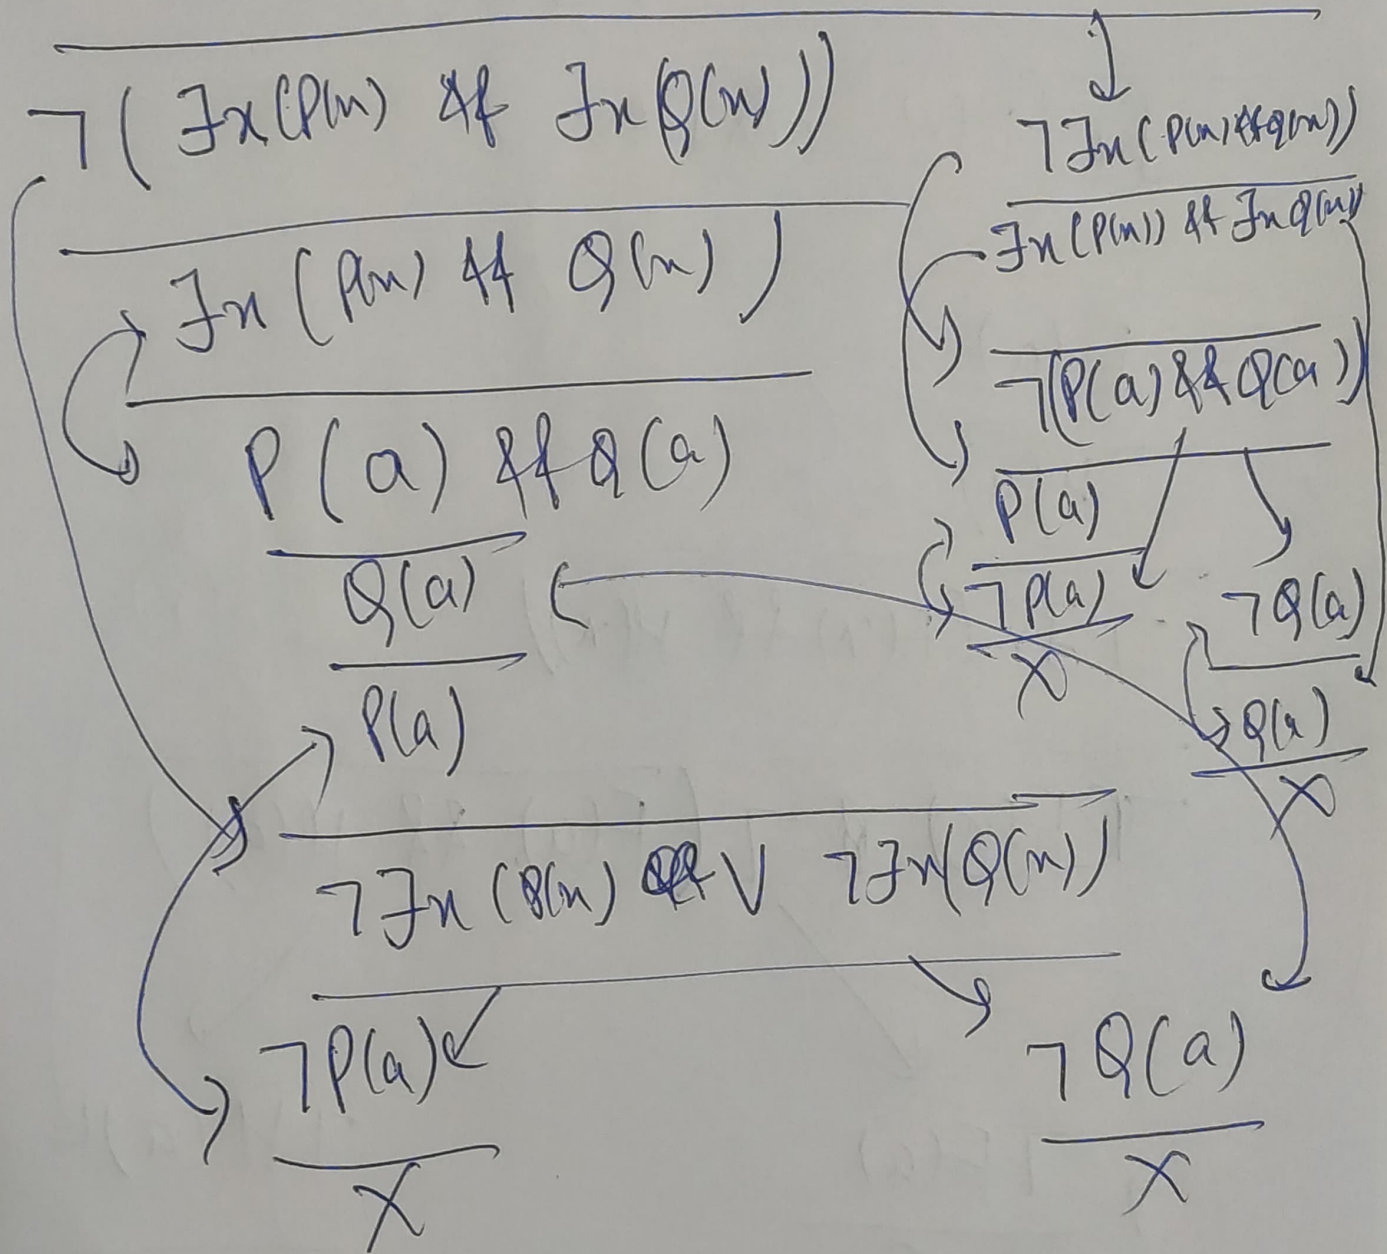 ¬(∃x(P(x) && ∃x(Q(x)))
∃x(P(x) && Q(x))
P(a) && Q(a)
Q(a)
P(a)
¬∃x(P(x) ∨ ¬∃x(Q(x))
¬P(a)
X
¬Q(a)
X
¬∃x(P(x) && Q(x))
∃x(P(x)) && ∃x Q(x)
¬(P(a) && Q(a))
P(a)
¬P(a)
X
¬Q(a)
Q(a)
X